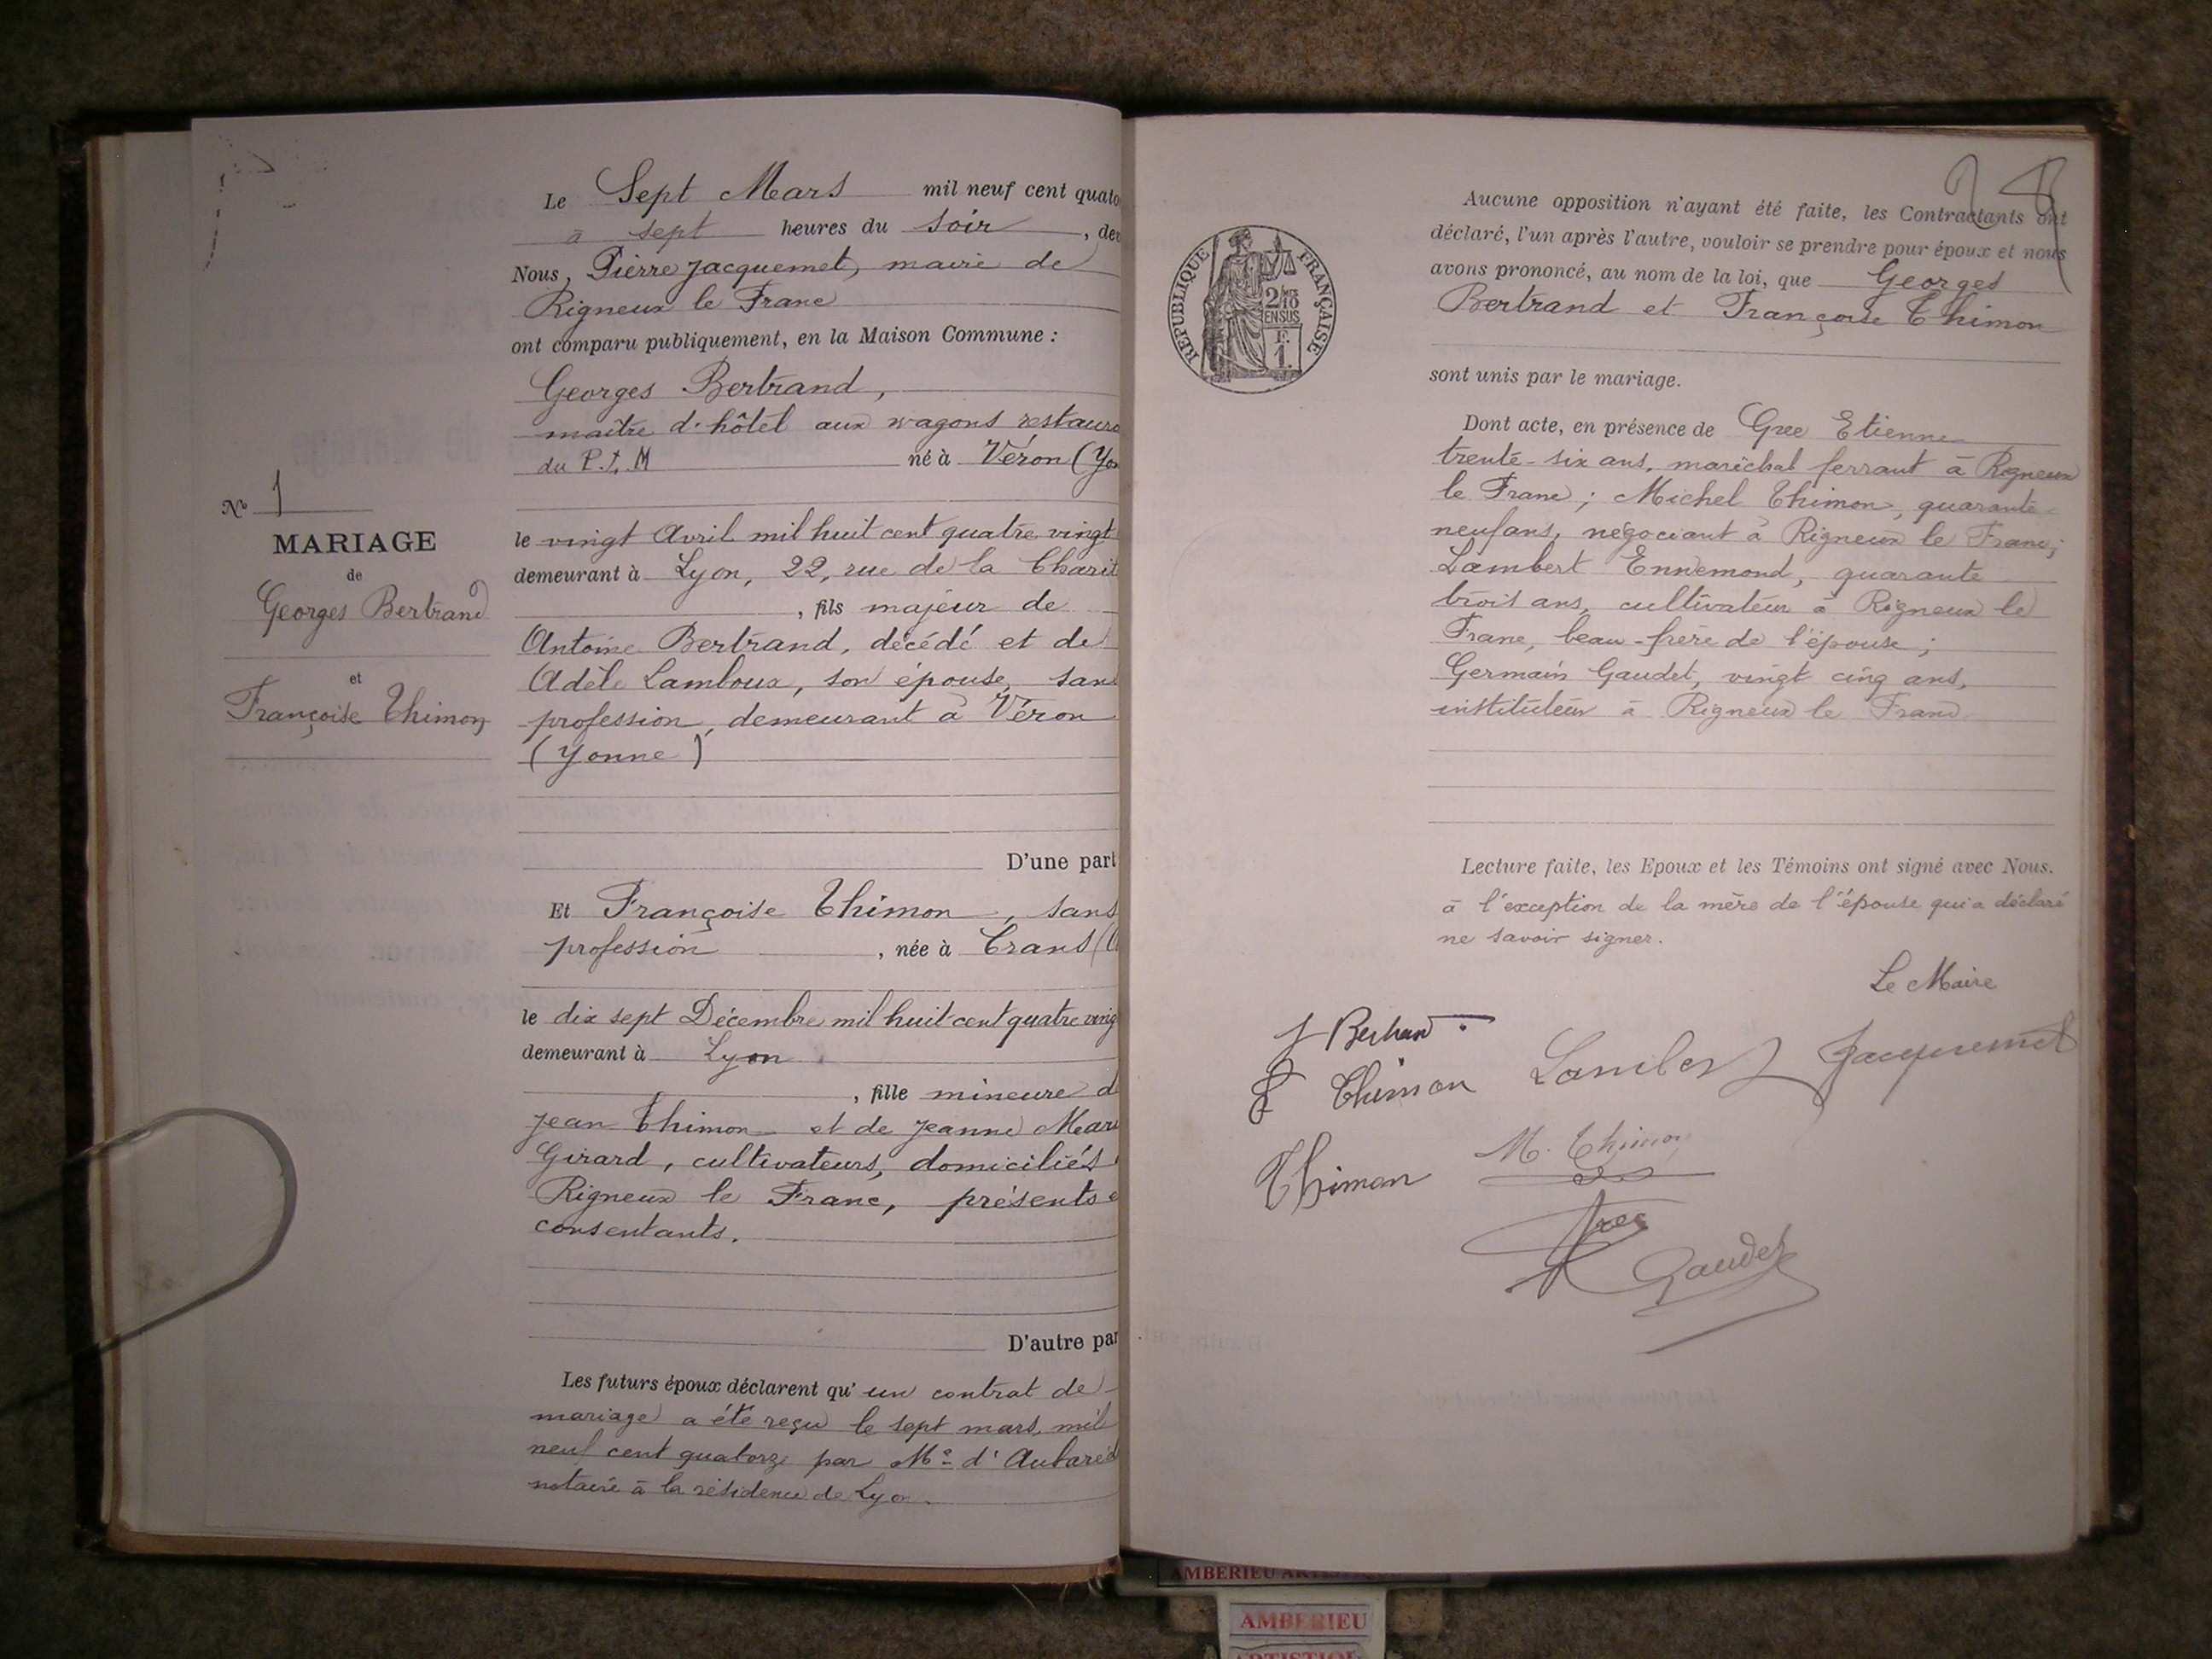 Le Sept Mars mil neuf cent quato
à sept heures du soir, dev
Nous, Pierre Jacquemet, maire de
Rigneux le Franc
ont comparu publiquement, en la Maison Commune :
Georges Bertrand,
maître d'hôtel aux wagons restaura
du P.L.M né à Véron (Yon
le vingt Avril mil huit cent quatre vingt
demeurant à Lyon, 22, rue de la Charit
, fils majeur de
Antoine Bertrand, décédé et de
Adèle Lamboux, son épouse, sans
profession, demeurant à Véron
(Yonne)
D'une part
No 1
MARIAGE
de
Georges Bertrand
et
Françoise Thimon
Et Françoise Thimon, sans
profession, née à Crans (
le dix sept Décembre mil huit cent quatre ving
demeurant à Lyon
, fille mineure d
Jean Thimon et de Jeanne Mari
Girard, cultivateurs, domiciliés
Rigneux le Franc, présents e
consentants.
D'autre par
Les futurs époux déclarent qu'un contrat de
mariage a été reçu le sept mars mil
neuf cent quatorze par Me d'Aubaréd
notaire à la résidence de Lyon.
RÉPUBLIQUE FRANÇAISE
2/10
EN SUS
1 F.
Aucune opposition n'ayant été faite, les Contractants ont
déclaré, l'un après l'autre, vouloir se prendre pour époux et nous
avons prononcé, au nom de la loi, que Georges
Bertrand et Françoise Thimon
sont unis par le mariage.
Dont acte, en présence de Gree Etienne
trente-six ans, maréchal ferrant à Rigneux
le Franc ; Michel Thimon, quarante-
neuf ans, négociant à Rigneux le Franc ;
Lambert Ennemond, quarante
trois ans, cultivateur à Rigneux le
Franc, beau-frère de l'épouse ;
Germain Gaudet, vingt cinq ans,
instituteur à Rigneux le Franc
Lecture faite, les Epoux et les Témoins ont signé avec Nous.
à l'exception de la mère de l'épouse qui a déclaré
ne savoir signer.
Le Maire
Bertrand
F Thimon Lambert Jacquemet
Thimon M. Thimon
Gree
Gaudet
AMBERIEU
AMBERIEU